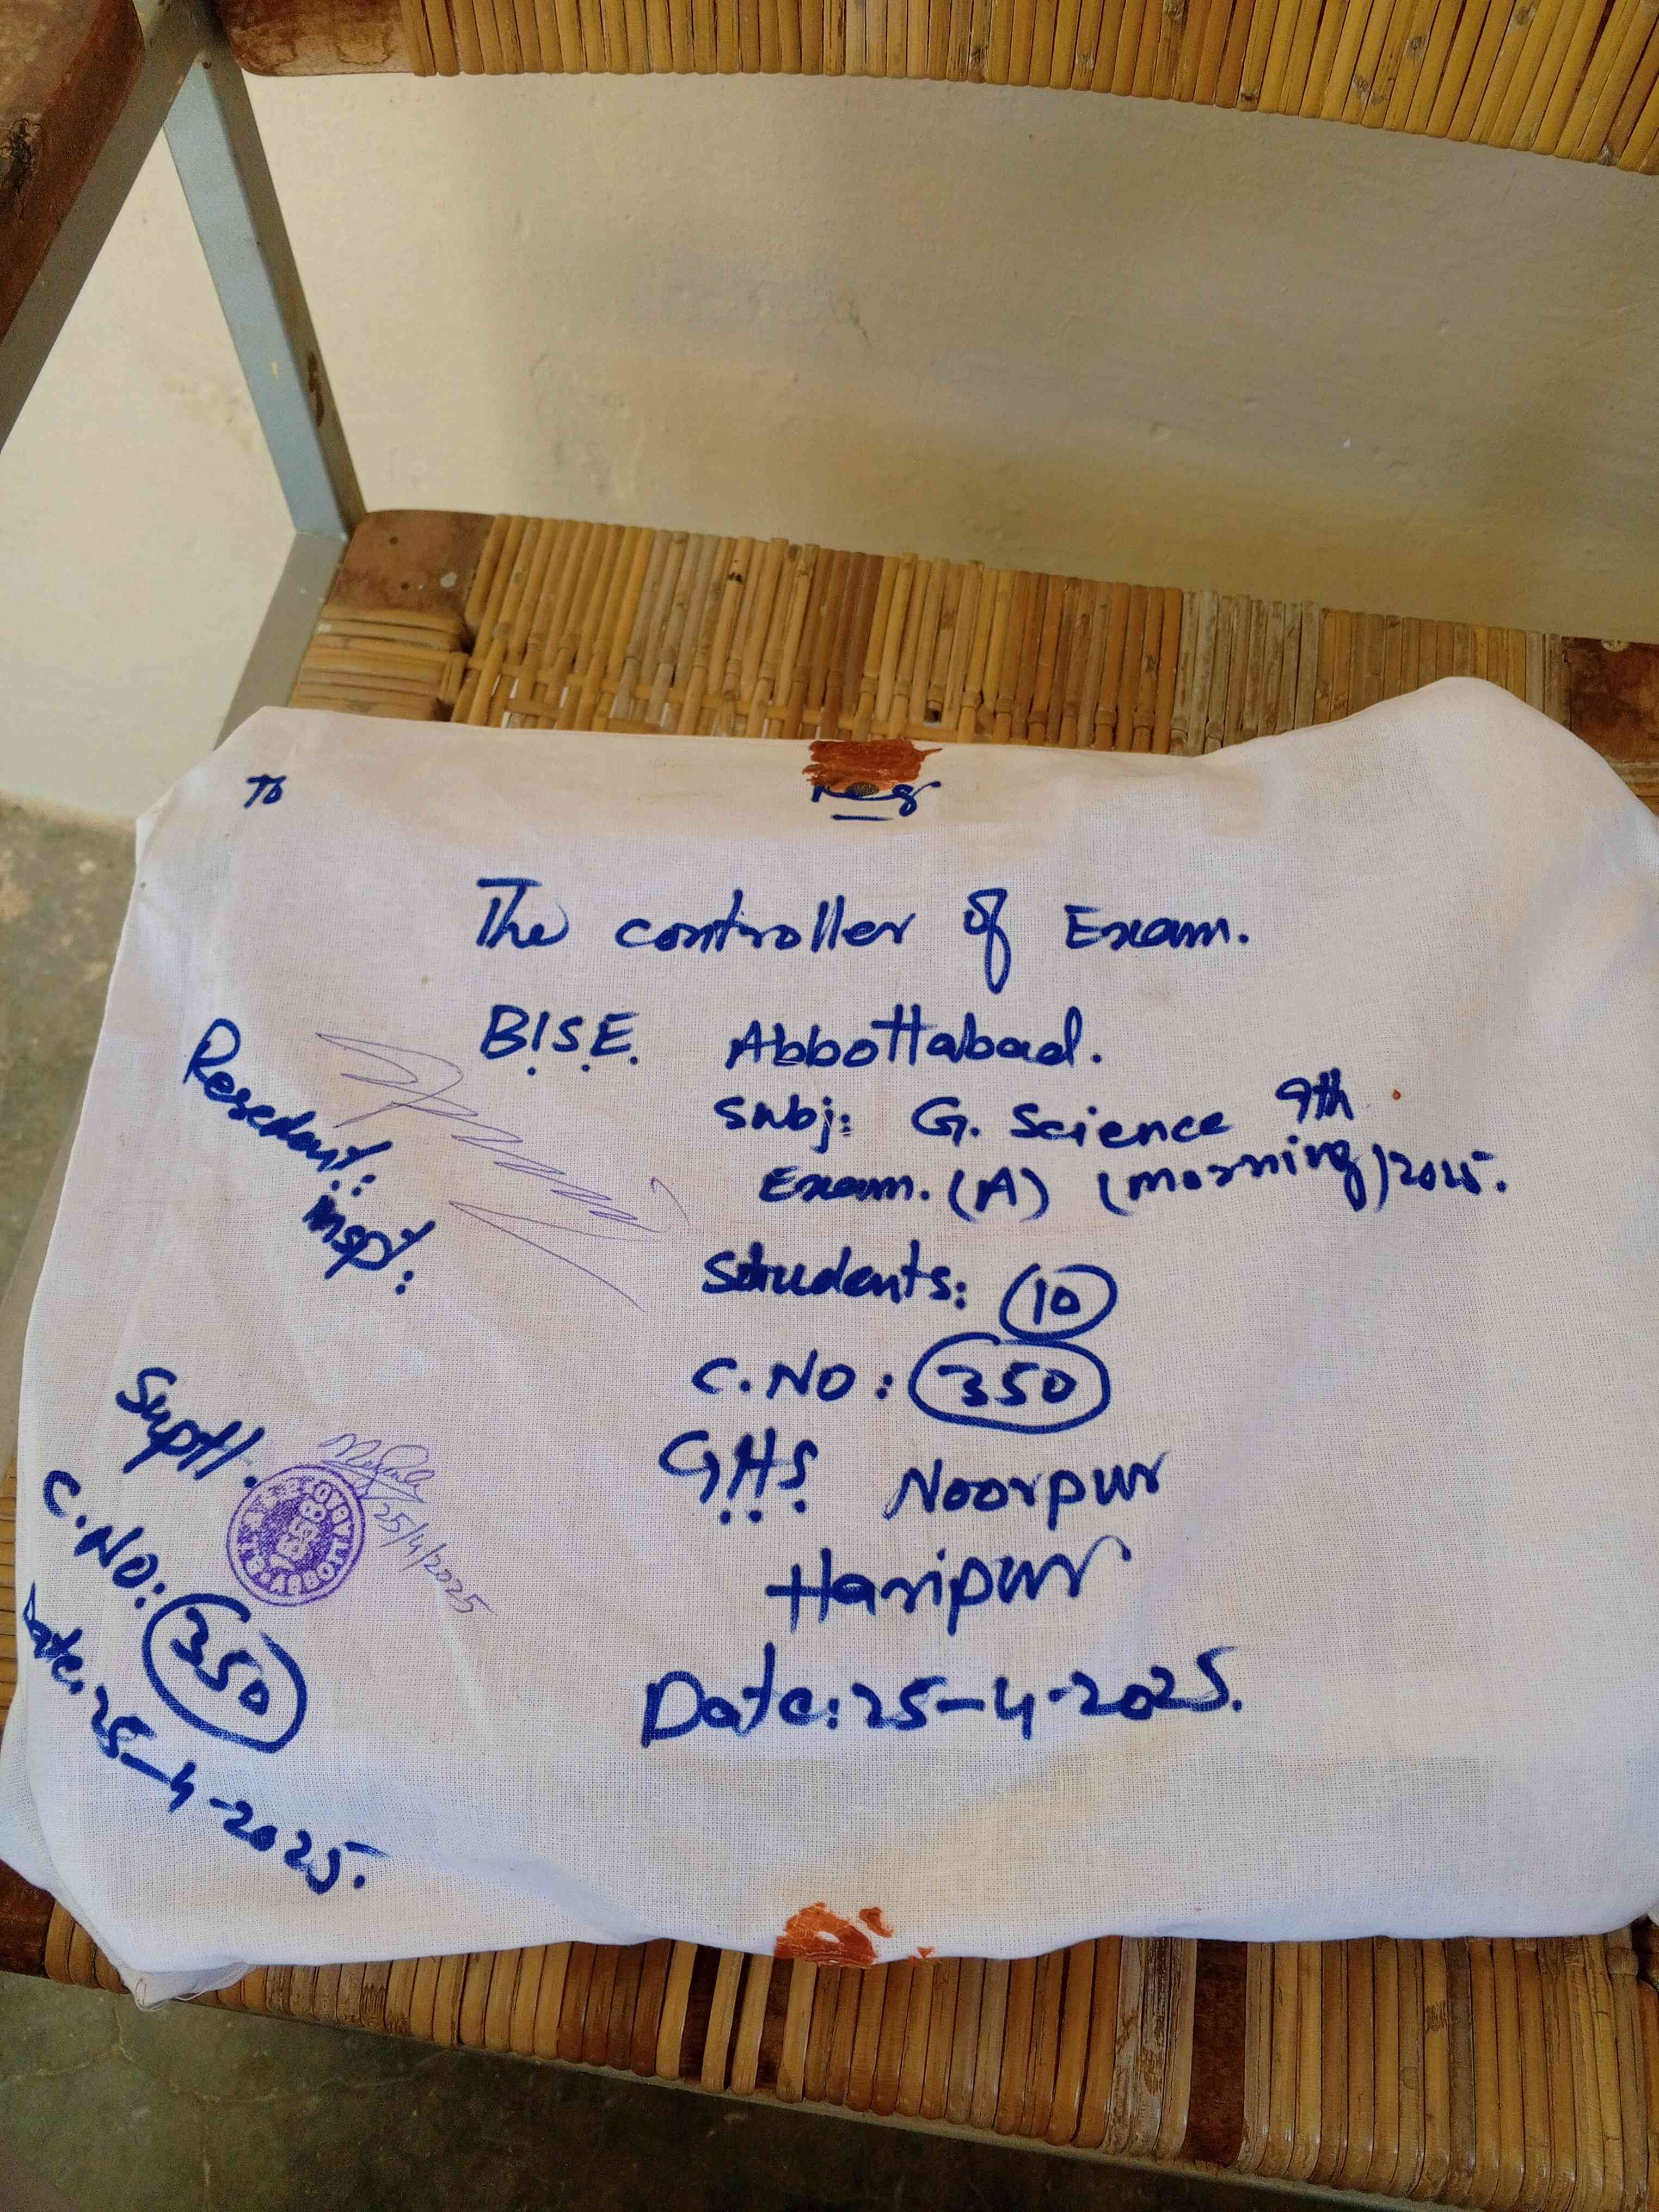 To
Reg
The controller of Exam.
B.I.S.E. Abbottabad.
Subj: G. Science 9th
Exam. (A) (Morning) 2025.
Students: 10
C.NO: 350
G.H.S. Noorpur
Haripur
Date: 25-4-2025.
Resedent:
inspt:
Suptt.
25/4/2025
C.NO: 350
Date: 25-4-2025.